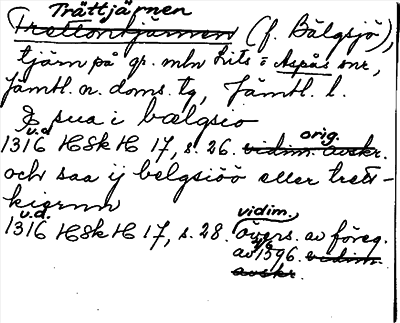 Trättjärnen
Trettontjärnen (f. Bälgsjö),
tjärn på gr. mln Lits o Aspås snr,
Jämtl. n. doms. tg, Jämtl. l.
& sua i bælgsio
u.d. orig.
1316 HSkH 17, s. 26. vidim. avskr.
och saa ij belgsiöö eller trett-
kiernn
u.d. vidim.
1316 HSkH 17, s. 28. övers. av föreg.
av 1596. vidim.
avskr.